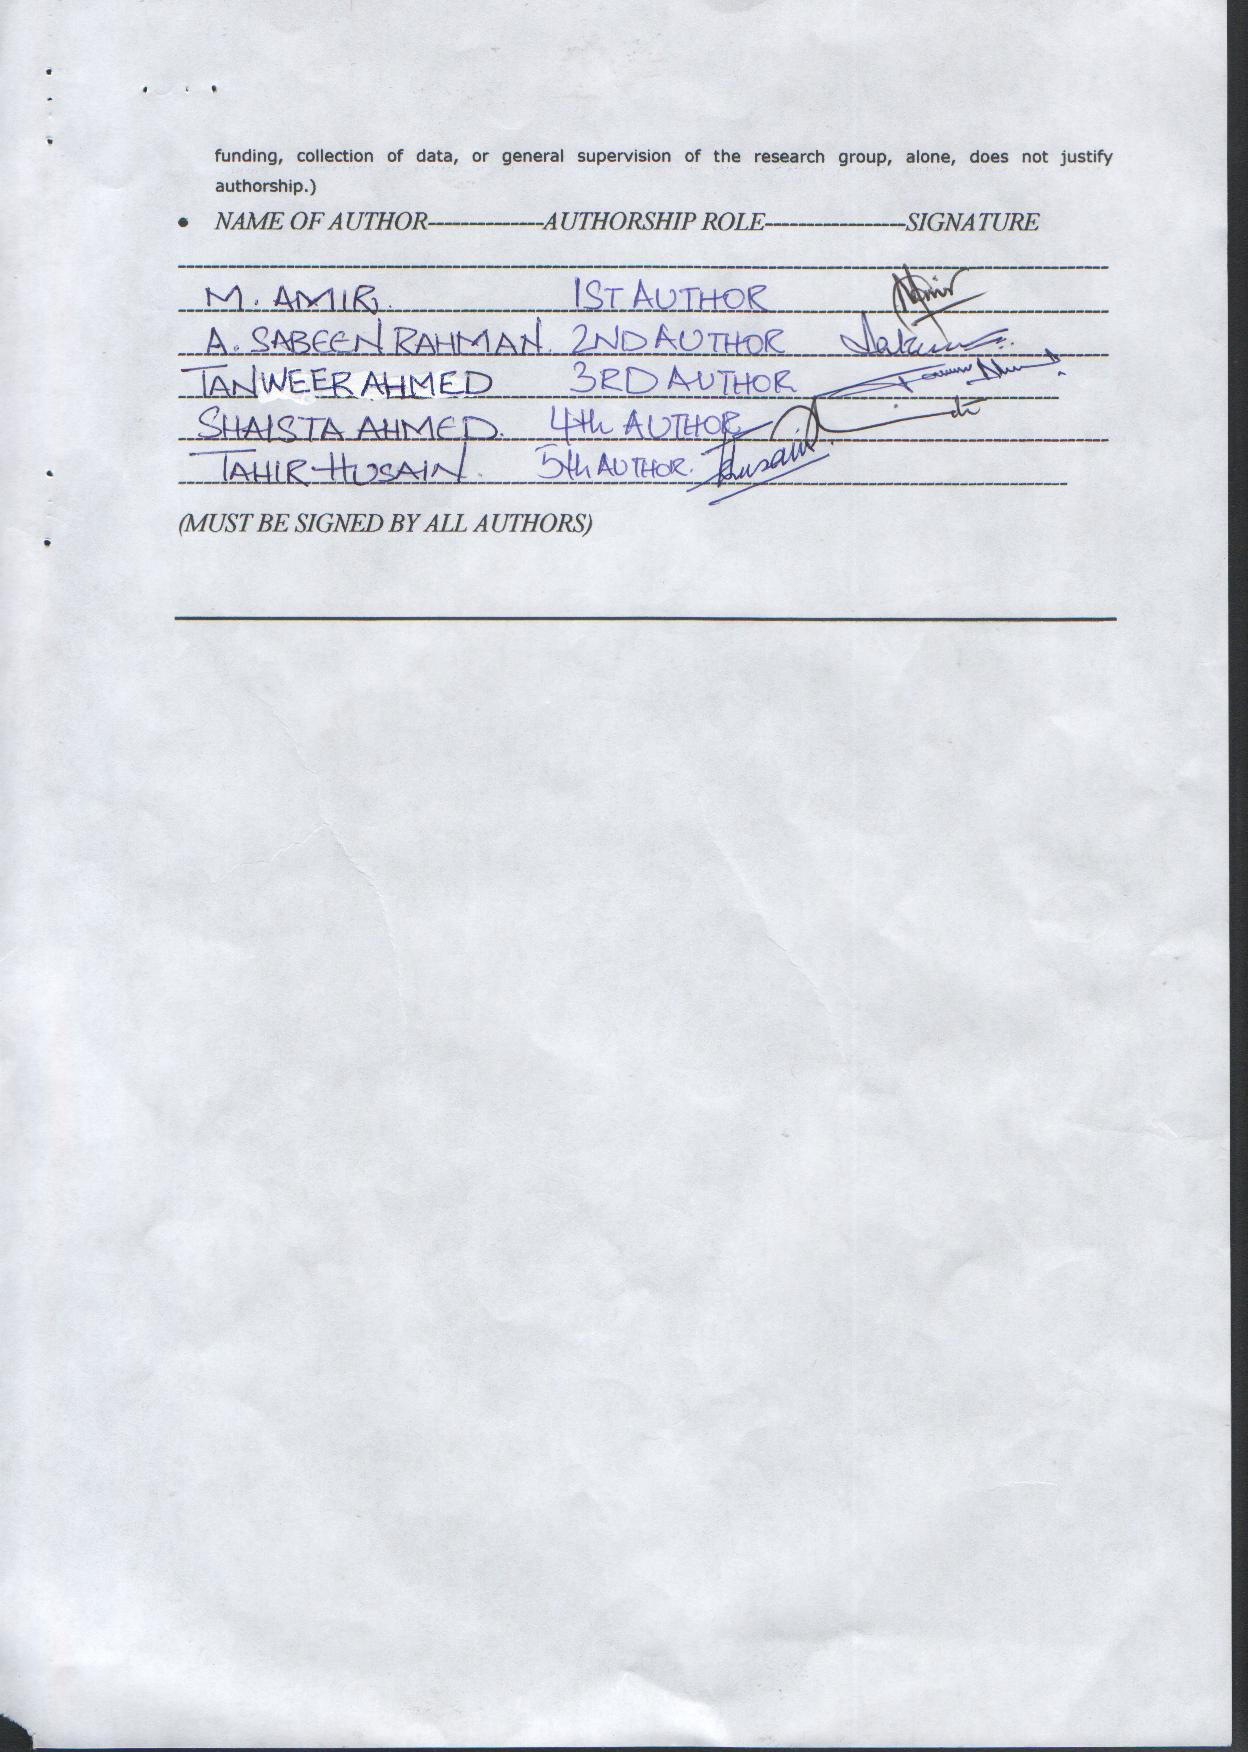 funding, collection of data, or general supervision of the research group, alone, does not justify
authorship.)
• NAME OF AUTHOR--------------AUTHORSHIP ROLE-----------------SIGNATURE
M. AMIR. 1ST AUTHOR Amir
A. SABEEN RAHMAN. 2ND AUTHOR
TANWEER AHMED 3RD AUTHOR
SHAISTA AHMED. 4th AUTHOR
TAHIR HUSAIN. 5th AUTHOR. Husain
(MUST BE SIGNED BY ALL AUTHORS)